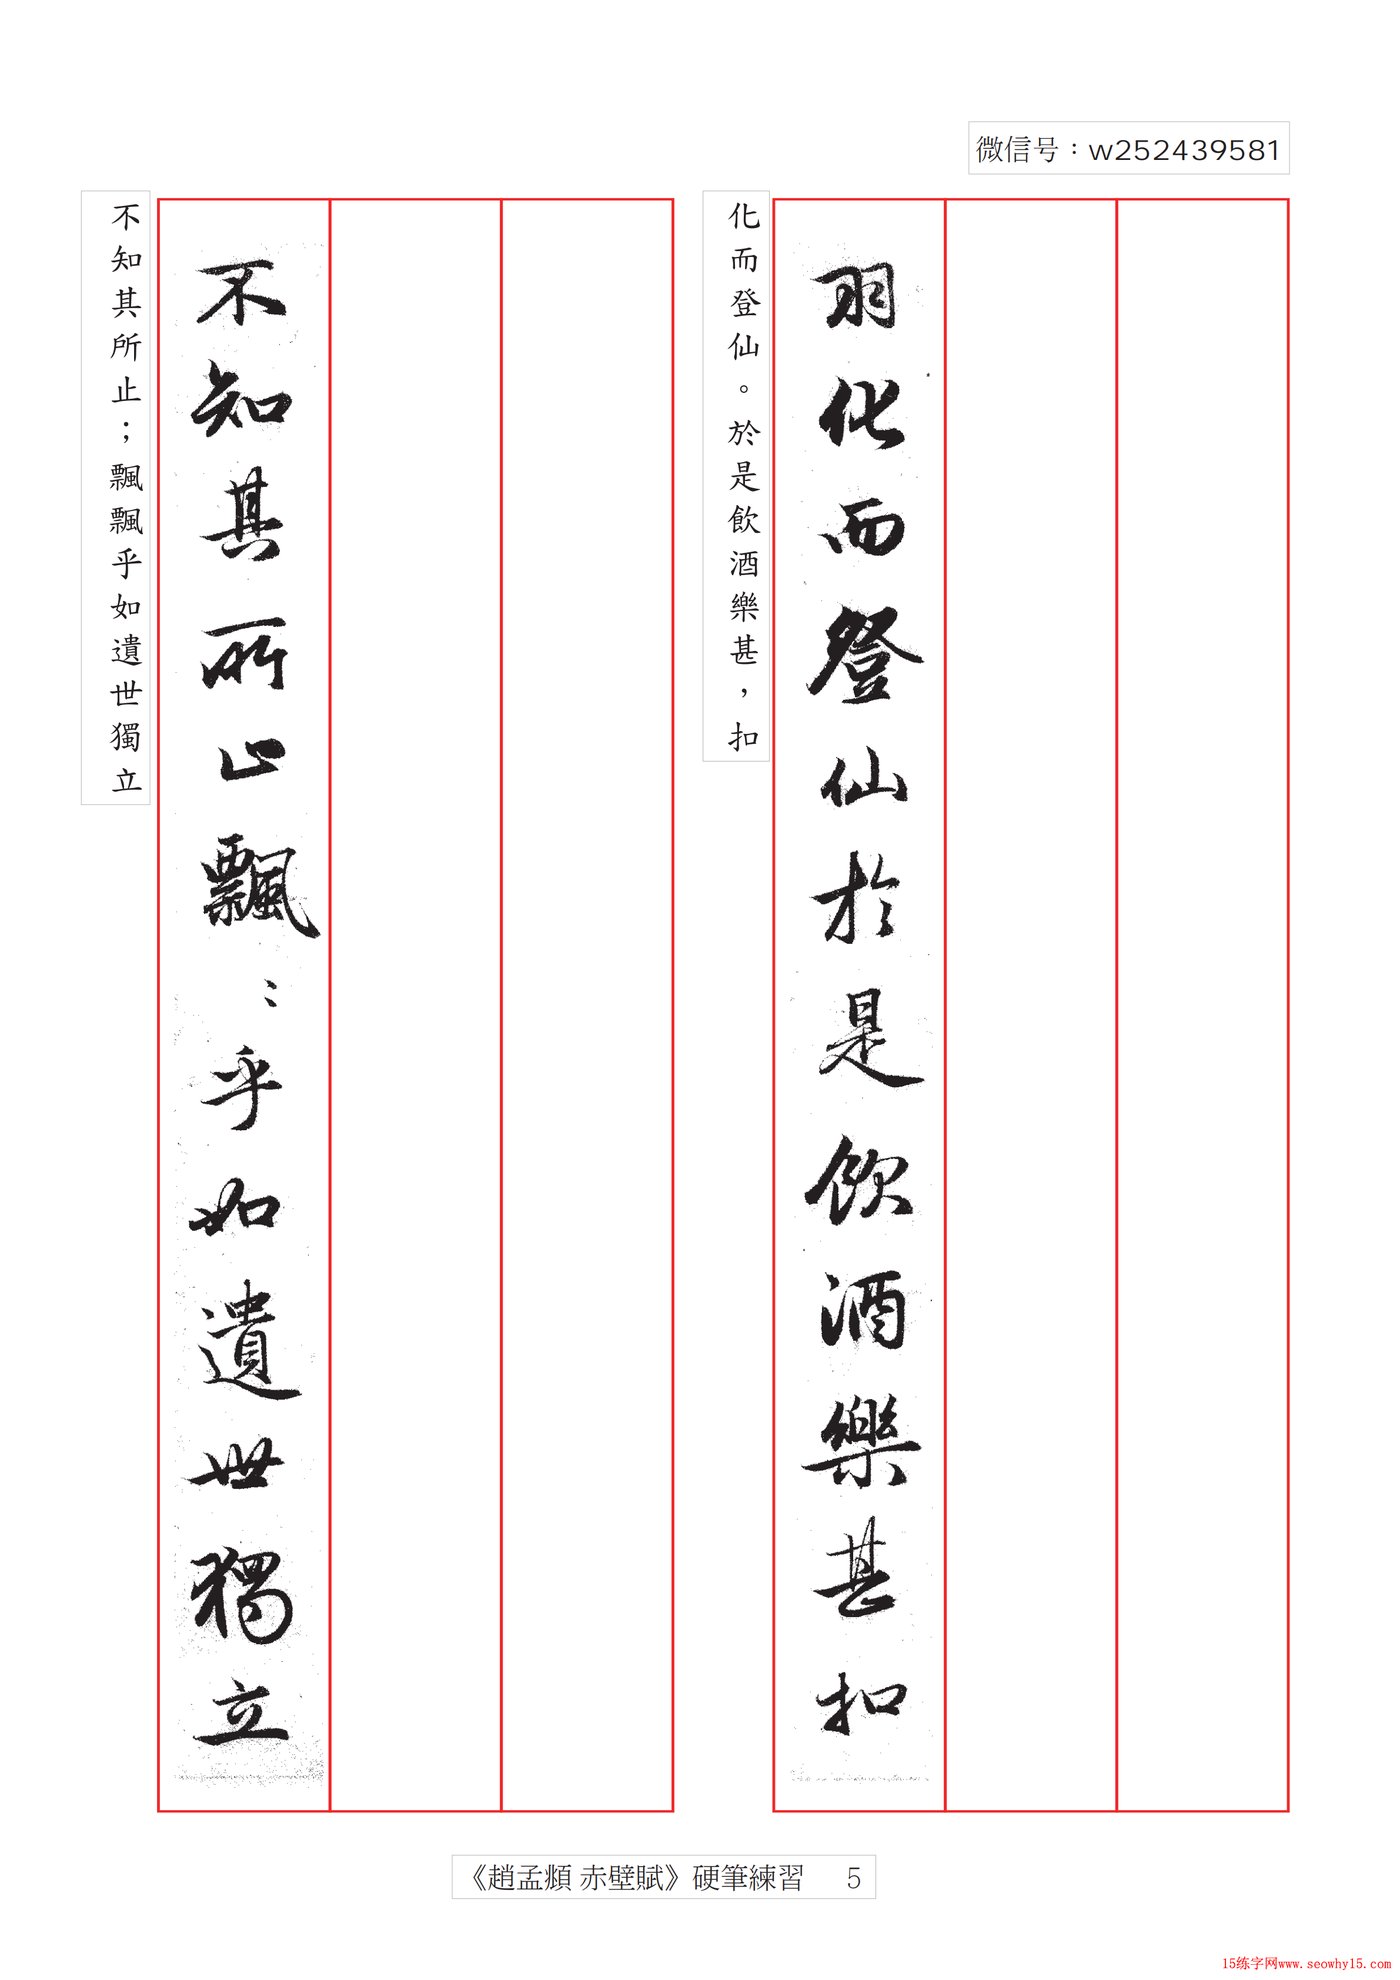 微信号：w252439581
不知其所止；飄飄乎如遺世獨立
不知其所止飄〻乎如遺世獨立
化而登仙。於是飲酒樂甚，扣
羽化而登仙於是飲酒樂甚扣
《趙孟頫 赤壁賦》硬筆練習 5
15练字网www.seowhy15.com